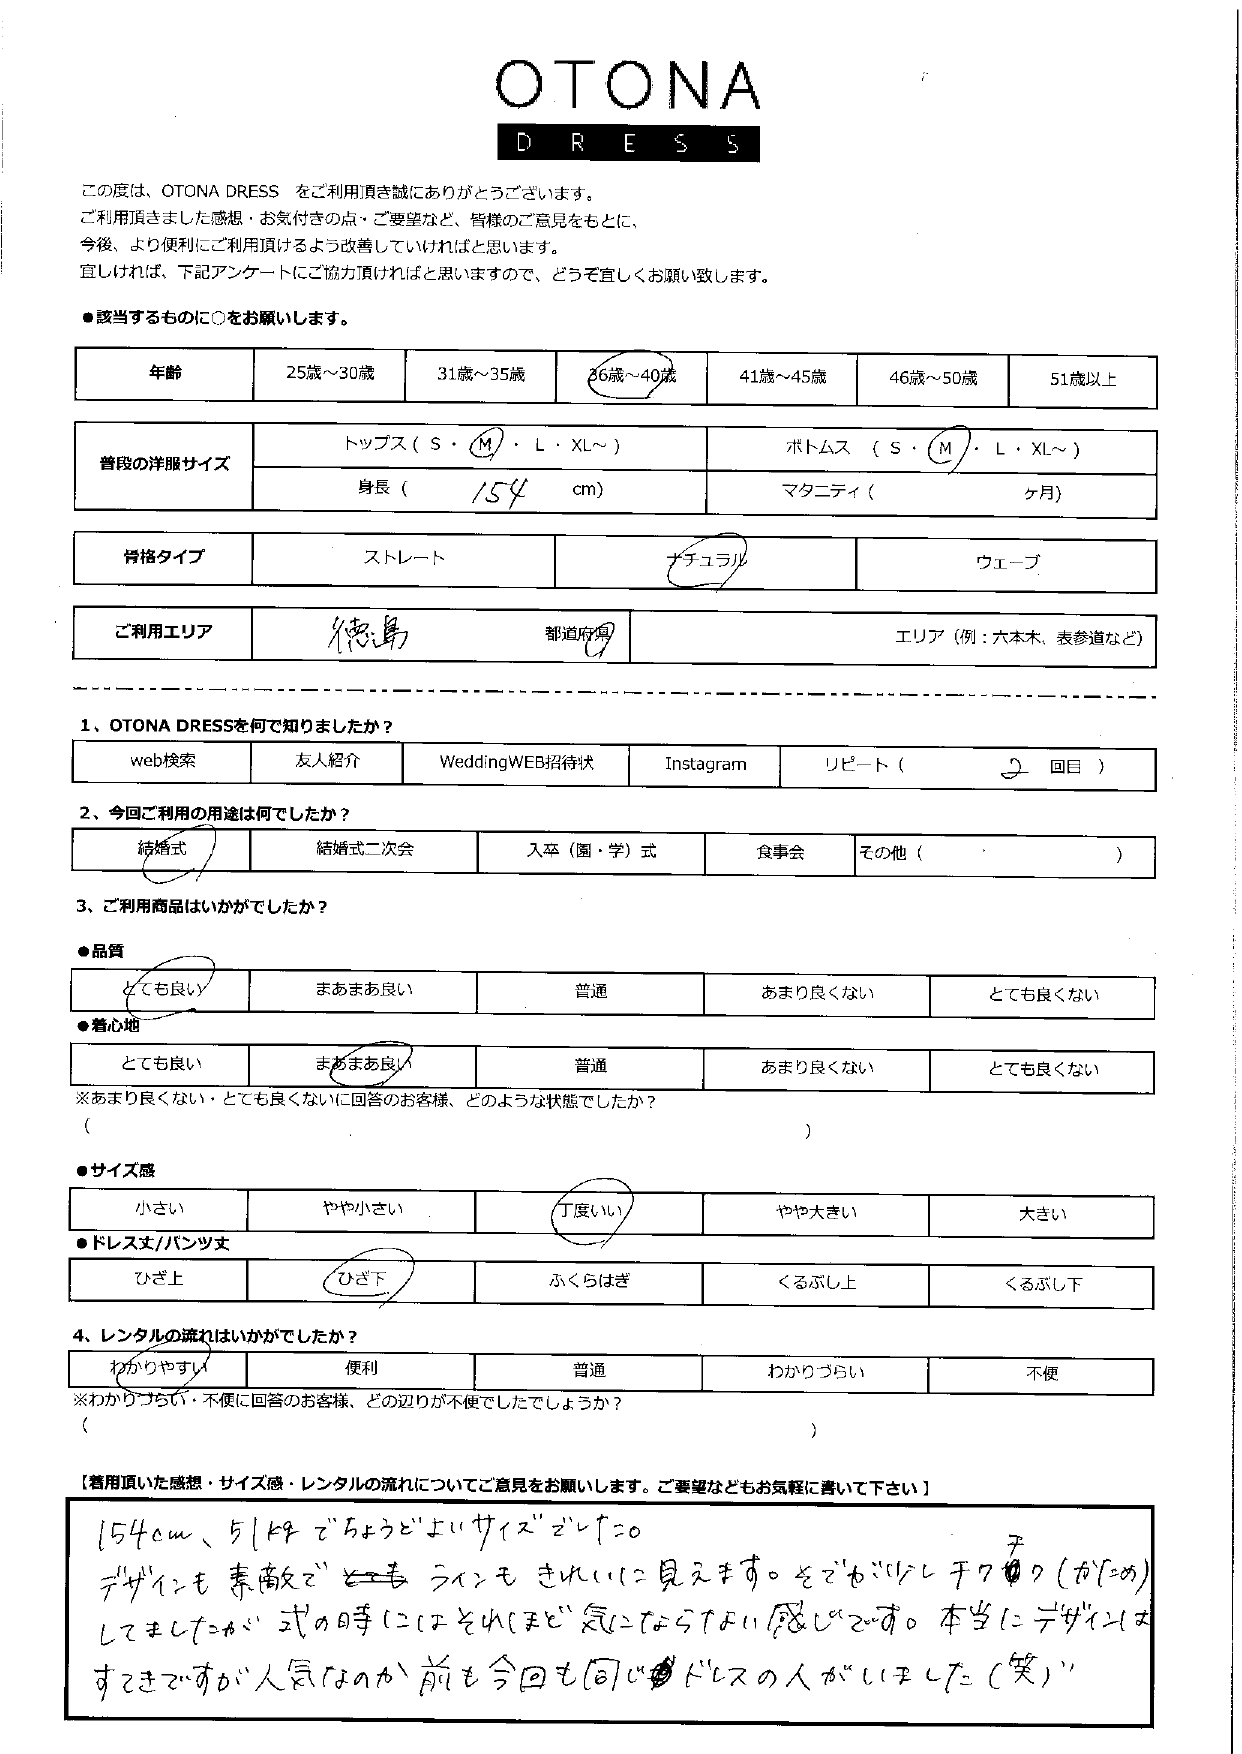 OTONA
DRESS
この度は、OTONA DRESS をご利用頂き誠にありがとうございます。
ご利用頂きました感想・お気付きの点・ご要望など、皆様のご意見をもとに、
今後、より便利にご利用頂けるよう改善していければと思います。
宜しければ、下記アンケートにご協力頂ければと思いますので、どうぞ宜しくお願い致します。
●該当するものに○をお願いします。
年齢 25歳～30歳 31歳～35歳 36歳～40歳 41歳～45歳 46歳～50歳 51歳以上
普段の洋服サイズ トップス ( S ・ M ・ L ・ XL～ ) ボトムス ( S ・ M ・ L ・ XL～ )
身長 ( 154 cm) マタニティ ( ヶ月)
骨格タイプ ストレート ナチュラル ウェーブ
ご利用エリア 徳島 都道府県 エリア（例：六本木、表参道など）
1、OTONA DRESSを何で知りましたか？
web検索 友人紹介 WeddingWEB招待状 Instagram リピート ( 2 回目 )
2、今回ご利用の用途は何でしたか？
結婚式 結婚式二次会 入卒（園・学）式 食事会 その他 ( )
3、ご利用商品はいかがでしたか？
●品質
とても良い まあまあ良い 普通 あまり良くない とても良くない
●着心地
とても良い まあまあ良い 普通 あまり良くない とても良くない
※あまり良くない・とても良くないに回答のお客様、どのような状態でしたか？
( )
●サイズ感
小さい やや小さい 丁度いい やや大きい 大きい
●ドレス丈/パンツ丈
ひざ上 ひざ下 ふくらはぎ くるぶし上 くるぶし下
4、レンタルの流れはいかがでしたか？
わかりやすい 便利 普通 わかりづらい 不便
※わかりづらい・不便に回答のお客様、どの辺りが不便でしたでしょうか？
( )
【着用頂いた感想・サイズ感・レンタルの流れについてご意見をお願いします。ご要望などもお気軽に書いて下さい】
154cm、51kgでちょうどよいサイズでした。
デザインも素敵で ラインもきれいに見えます。そでが少しチクチク(かため)
してましたが 式の時にはそれほど気にならない感じです。本当にデザインは
すてきですが人気なのか前も今回も同じドレスの人がいました(笑)